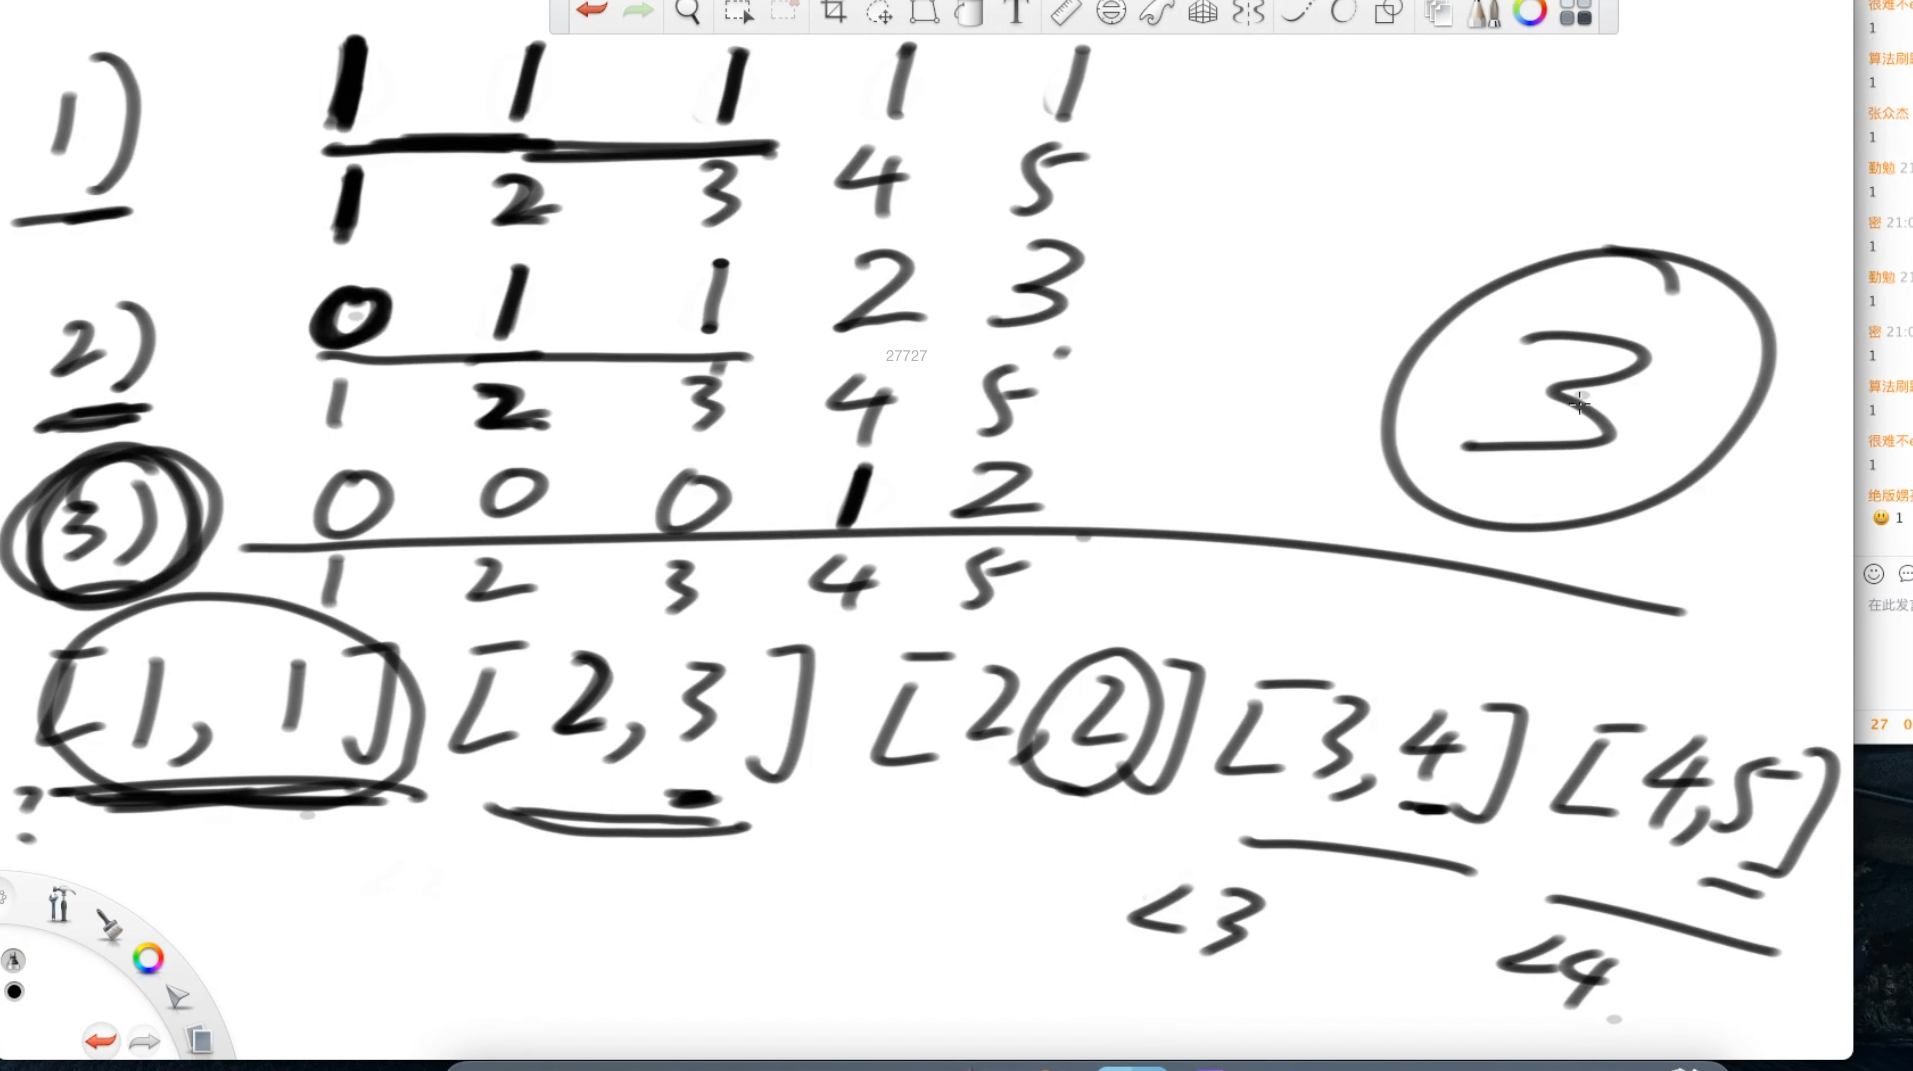 1) 1 1 1 1 1
1 2 3 4 5
2) 0 1 1 2 3
27727
1 2 3 4 5
3
3) 0 0 0 1 2
1 2 3 4 5
[1, 1] [2, 3] [2, 2] [3, 4] [4, 5]
?
<3
<4
很难不
1
算法刷
1
张众杰
1
勤勉 21
1
密 21:0
1
勤勉 21
1
密 21:0
1
算法刷
1
很难不
1
绝版
1
在此发
27 0